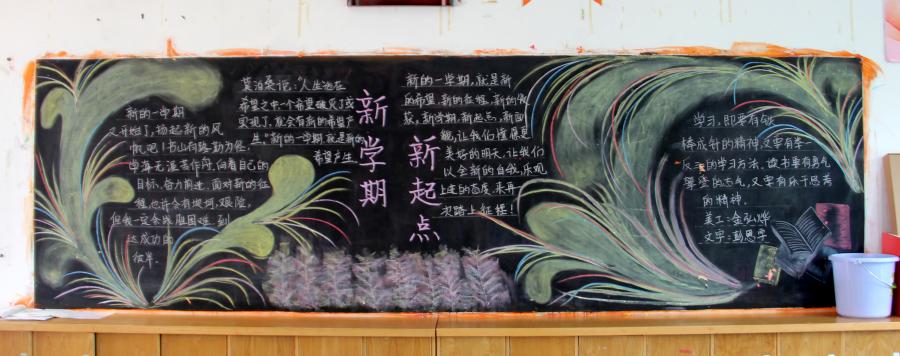 新的一学期
又开始了,扬起新的风
帆吧!书山有路勤为径,
学海无涯苦作舟,向着自己的
目标,奋力前进,面对新的征
程,也许会有坎坷,艰险,
但我一定会战胜困难,到
达成功的
彼岸。
莫泊桑说:"人生活在
希望之中一个希望破灭了或
实现了,就会有新的希望产
生,"新的一学期,就是新的
希望产生
新学期
新起点
新的一学期,就是新
的希望,新的征程,新的
新学期,新起点,新面
貌,让我们憧憬
美好的明天,让我们
以全新的自我,乐观
上进的态度,来再一
次踏上征程!
学习,即要有铁
棒成针的精神,又要有举一
反三的学习方法,读书要有勇气
攀登的志气,又要有乐于思考
的精神.
美工:金弘烨
文字:彭思宇